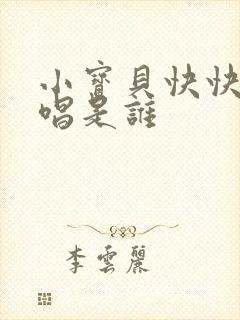 小寶貝快快
唱是誰
李雲麗